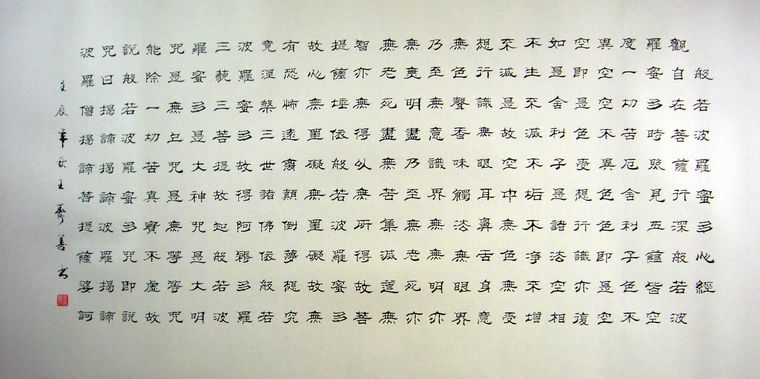 般若波羅蜜多心經
觀自在菩薩行深般若波
羅蜜多時照見五蘊皆空
度一切苦厄舍利子色不
異空空不異色色即是空
空即是色受想行識亦復
如是舍利子是諸法空相
不生不滅不垢不淨不增
不減是故空中無色無受
想行識無眼耳鼻舌身意
無色聲香味觸法無眼界
乃至無意識界無無明亦
無無明盡乃至無老死亦
無老死盡無苦集滅道無
智亦無得以無所得故菩
提薩埵依般若波羅蜜多
故心無罣礙無罣礙故無
有恐怖遠離顛倒夢想究
竟涅槃三世諸佛依般若
波羅蜜多故得阿耨多羅
三藐三菩提故知般若波
羅蜜多是大神咒是大明
咒是無上咒是無等等咒
能除一切苦真實不虛故
說般若波羅蜜多咒即說
咒曰揭諦揭諦波羅揭諦
波羅僧揭諦菩提薩婆訶
壬辰年秋王善書